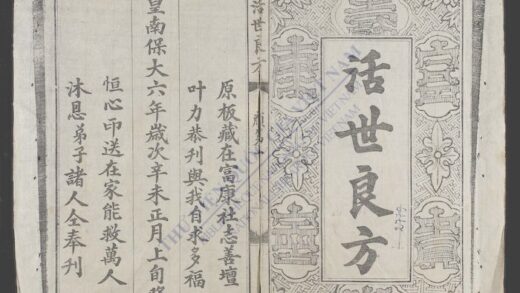 活世良方
活世良方
原板藏在富康社志善壇
叶力恭刊與我自求多福
皇南保大六年歲次辛未正月上旬
恒心印送在家能救萬人
沐恩弟子諸人仝奉刊
THƯ VIỆN QUỐC GIA VIỆT NAM